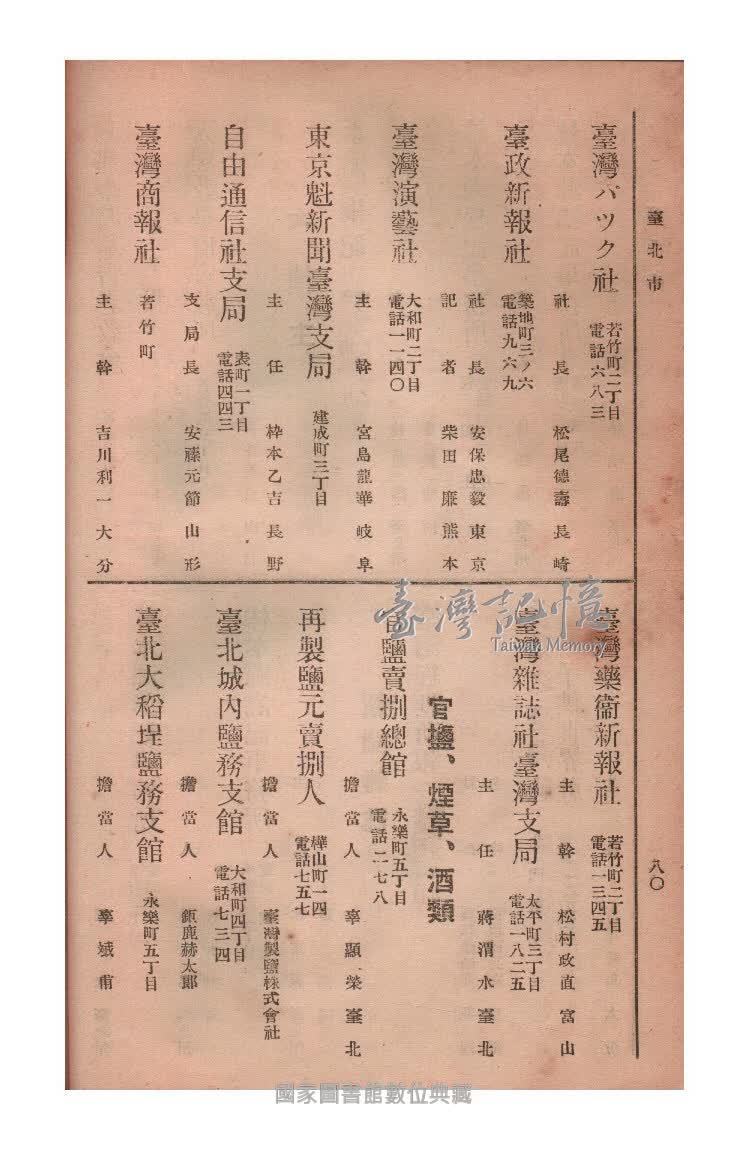 臺北市
臺灣パツク社
若竹町二丁目
電話六八三
社長 松尾德壽 長崎
臺政新報社
築地町三ノ六
電話九六九
社長 安保忠毅 東京
記者 柴田廉 熊本
臺灣演藝社
大和町二丁目
電話一一四〇
主幹 宮島龍華 岐阜
東京魁新聞臺灣支局
建成町三丁目
主任 枠本乙吉 長野
自由通信社支局
表町一丁目
電話四四三
支局長 安藤元節 山形
臺灣商報社
若竹町
主幹 吉川利一 大分
臺灣藥衞新報社
若竹町二丁目
電話一三四五
主幹 松村政直 富山
臺灣雜誌社臺灣支局
太平町三丁目
電話一八二五
主任 蔣渭水 臺北
官鹽、煙草、酒類
官鹽賣捌總館
永樂町五丁目
電話二七八
擔當人 辜顯榮 臺北
再製鹽元賣捌人
樺山町一四
電話七五七
擔當人 臺灣製鹽株式會社
臺北城內鹽務支館
大和町四丁目
電話七三四
擔當人 鉅鹿赫太郎
臺北大稻埕鹽務支館
永樂町五丁目
擔當人 辜甫
八〇
臺灣記憶
Taiwan Memory
國家圖書館數位典藏